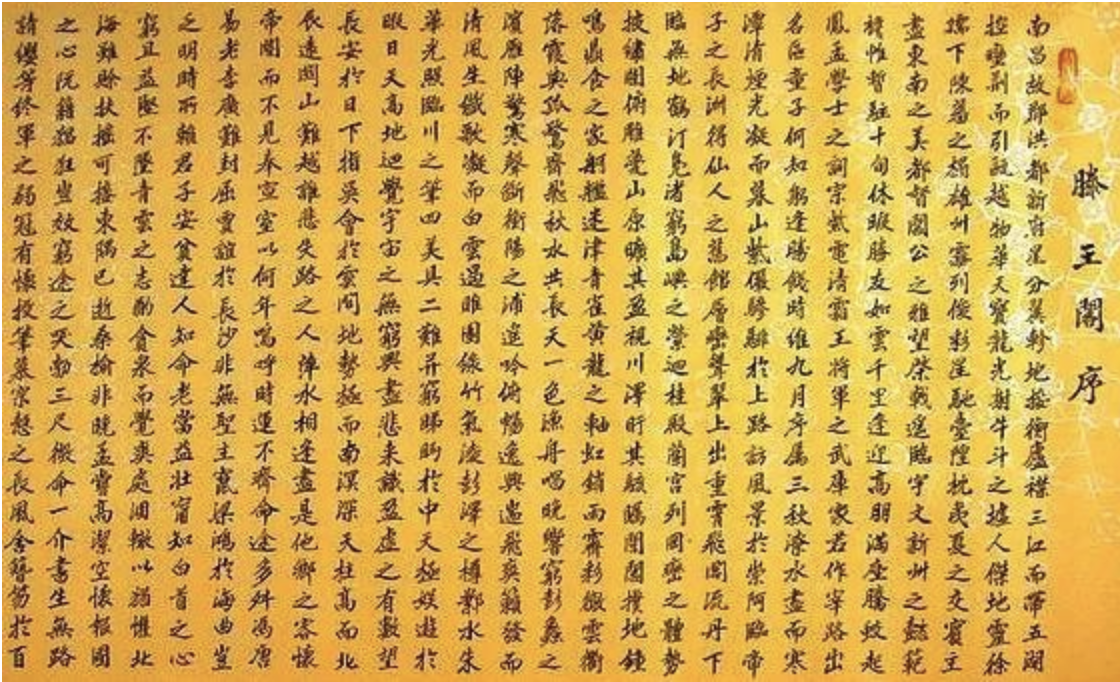 滕王閣序
南昌故郡洪都新府星分翼軫地接衡廬襟三江而帶五湖
控蠻荊而引甌越物華天寶龍光射牛斗之墟人傑地靈徐
孺下陳蕃之榻雄州霧列俊彩星馳臺隍枕夷夏之交賓主
盡東南之美都督閻公之雅望棨戟遙臨宇文新州之懿範
襜帷暫駐十旬休暇勝友如雲千里逢迎高朋滿座騰蛟起
鳳孟學士之詞宗紫電清霜王將軍之武庫家君作宰路出
名區童子何知躬逢勝餞時維九月序屬三秋潦水盡而寒
潭清煙光凝而暮山紫儼驂騑於上路訪風景於崇阿臨帝
子之長洲得仙人之舊館層巒聳翠上出重霄飛閣流丹下
臨無地鶴汀鳧渚窮島嶼之縈迴桂殿蘭宮列岡巒之體勢
披繡闥俯雕甍山原曠其盈視川澤盱其駭矚閭閻撲地鐘
鳴鼎食之家舸艦迷津青雀黃龍之軸虹銷雨霽彩徹雲衢
落霞與孤鶩齊飛秋水共長天一色漁舟唱晚響窮彭蠡之
濱雁陣驚寒聲斷衡陽之浦遙吟俯暢逸興遄飛爽籟發而
清風生纖歌凝而白雲遏睢園綠竹氣凌彭澤之樽鄴水朱
華光照臨川之筆四美具二難并窮睇眄於中天極娛遊於
暇日天高地迥覺宇宙之無窮興盡悲來識盈虛之有數望
長安於日下指吳會於雲間地勢極而南溟深天柱高而北
辰遠關山難越誰悲失路之人萍水相逢盡是他鄉之客懷
帝閽而不見奉宣室以何年嗚呼時運不齊命途多舛馮唐
易老李廣難封屈賈誼於長沙非無聖主竄梁鴻於海曲豈
乏明時所賴君子安貧達人知命老當益壯甯知白首之心
窮且益堅不墜青雲之志酌貪泉而覺爽處涸轍以猶懽北
海雖賒扶搖可接東隅已逝桑榆非晚孟嘗高潔空懷報國
之心阮籍猖狂豈效窮途之哭勃三尺微命一介書生無路
請纓等終軍之弱冠有懷投筆慕宗愨之長風舍簪笏於百